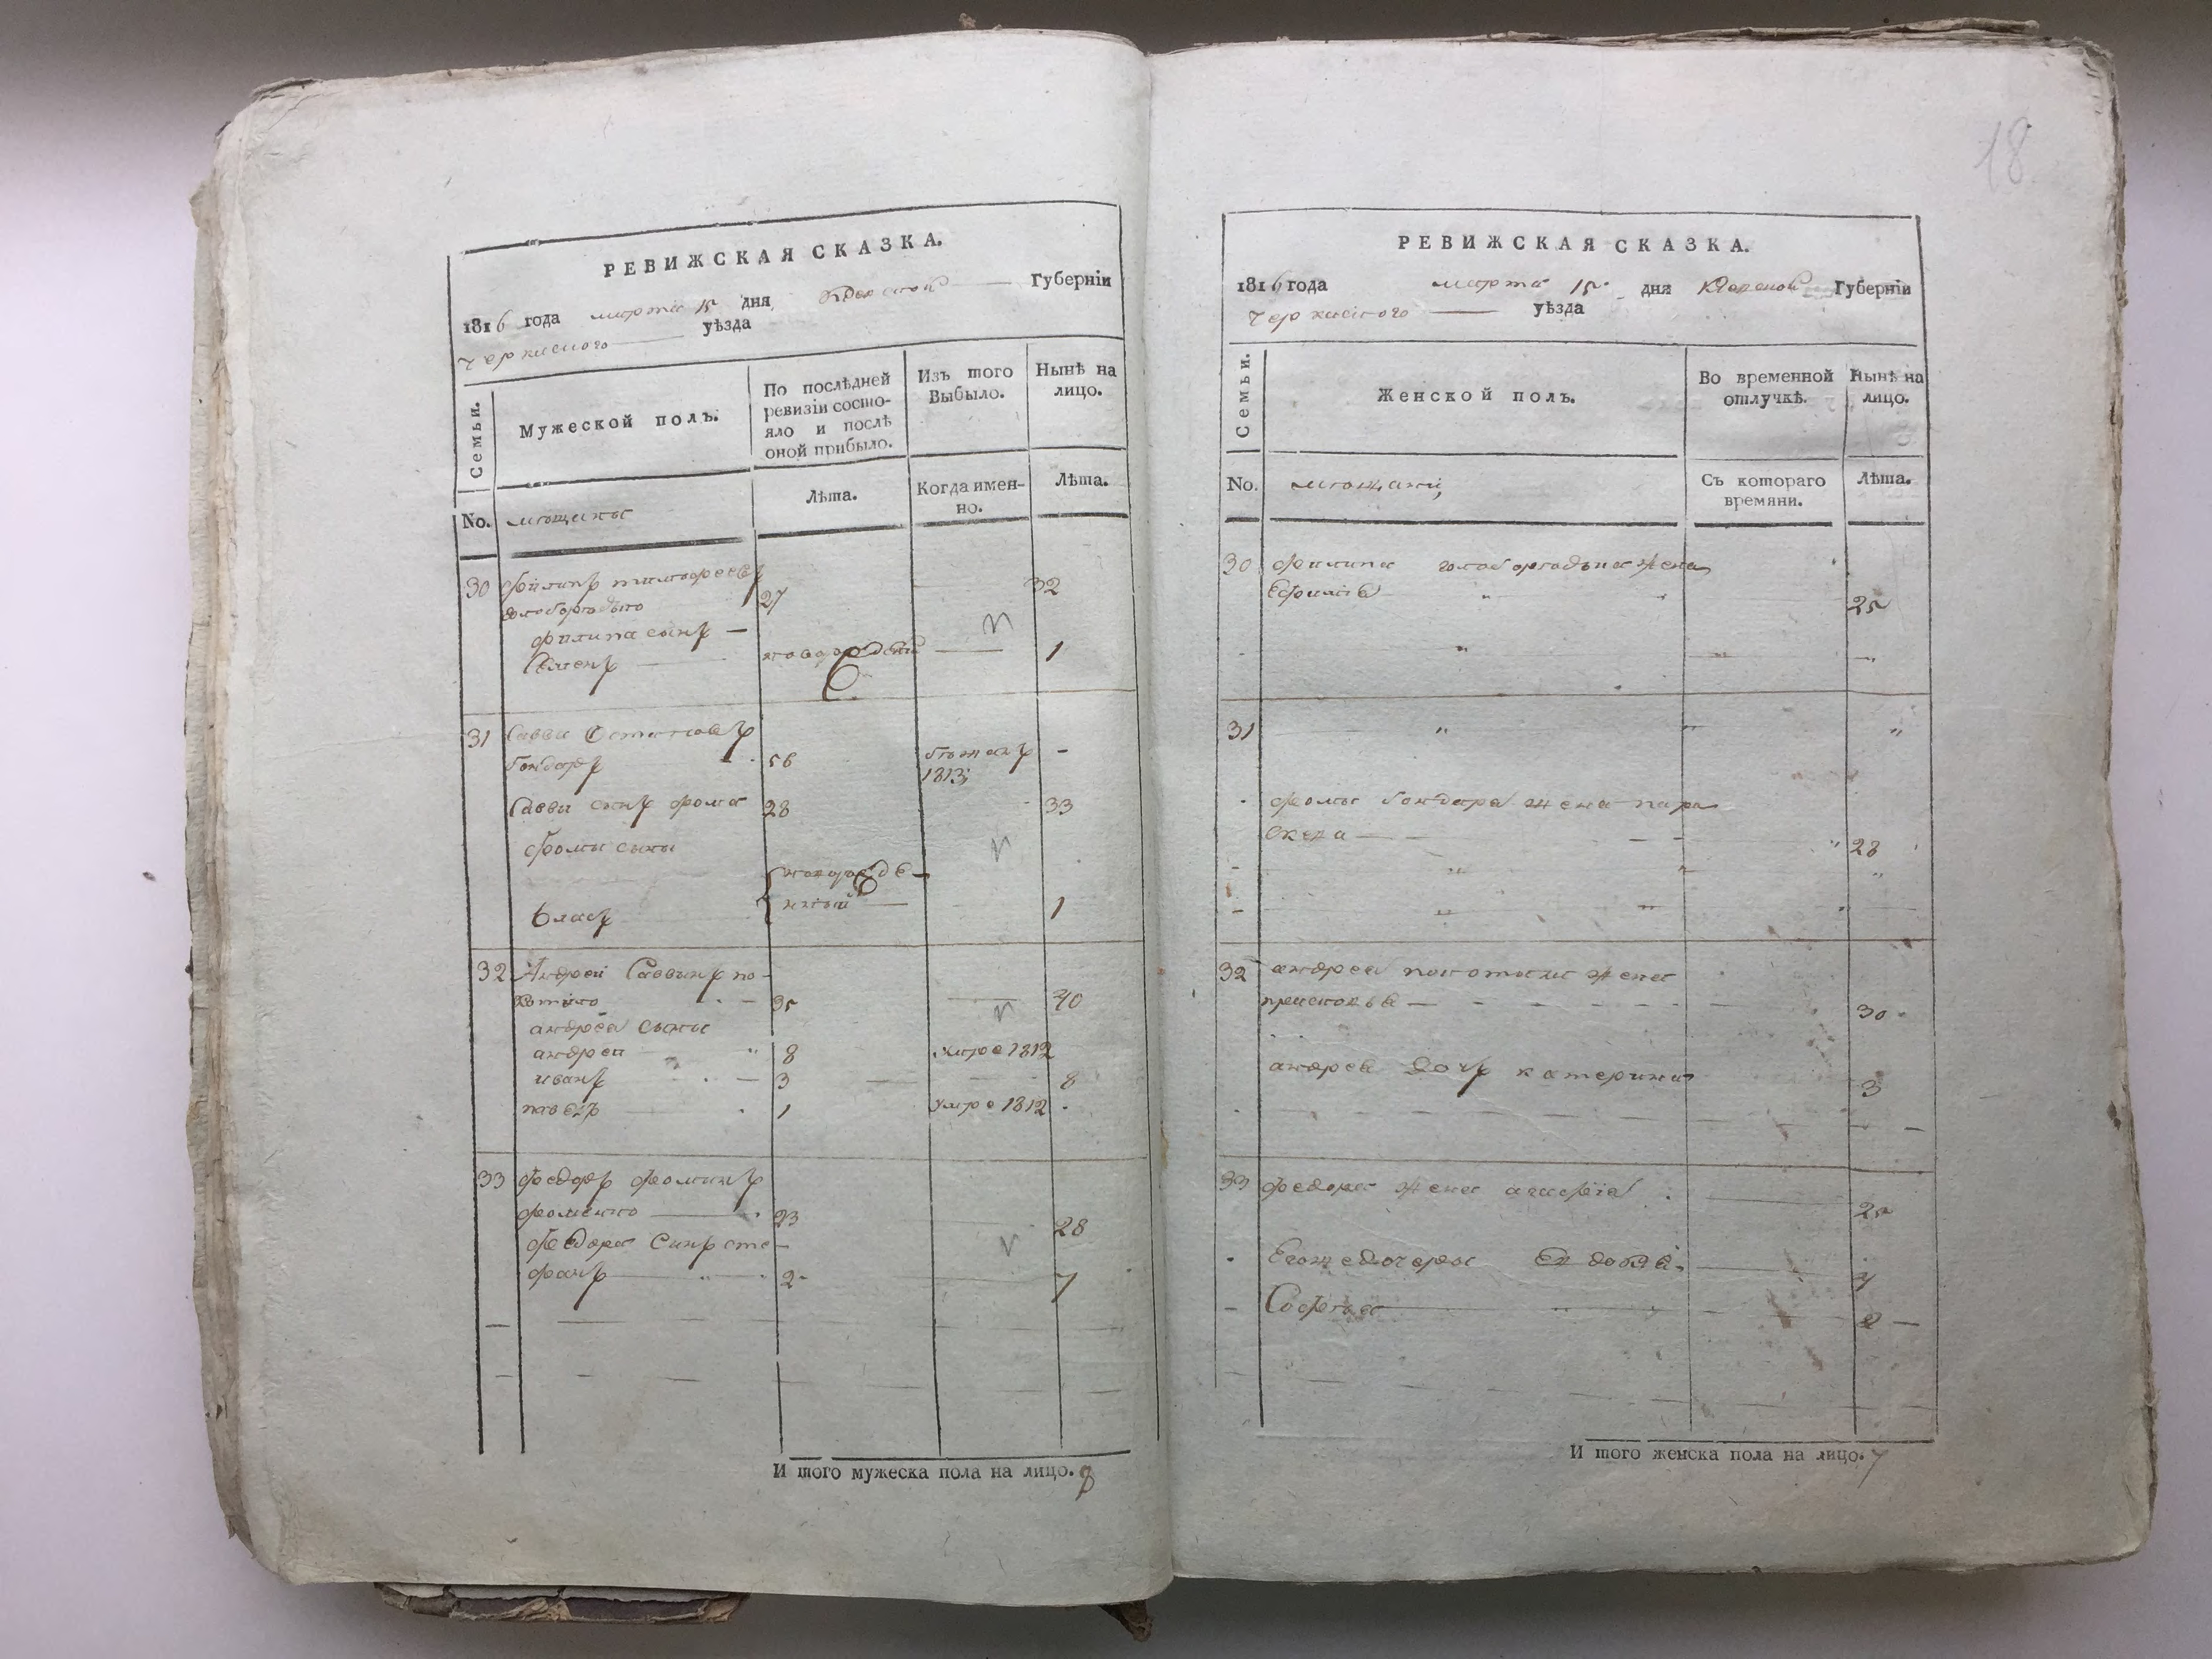 18
РЕВИЖСКАЯ СКАЗКА.
1816 года марта 15 дня Киевской Губерніи
Черкаского уѣзда
Семьи.
Мужеской полъ.
По послѣдней ревизіи состо-
яло и послѣ
оной прибыло.
Изъ того
Выбыло.
Нынѣ на
лицо.
No. мѣщаны
Лѣта.
Когда имен-
но.
Лѣта.
30 Филипъ
27 32
Филипа сынъ —
Семенъ новорожденій 1
31 Савва Остаповъ
бондаръ 56 бѣжалъ
1813;
Савви сынъ Фома 28 33
Фомы сыны
новорожде-
нный
Власъ 1
32 Андрей Саввинъ по-
35 40
андрея сыны
андрей 8 умре 1812
иванъ 3 8
павелъ 1 умре 1812
33 Федоръ Фоминъ
фоменко 23 28
Федора Синъ сте-
фанъ 2 7
И того мужеска пола на лицо. 8
РЕВИЖСКАЯ СКАЗКА.
1816 года марта 15 дня Киевской Губерніи
Черкаского уѣзда
Семьи.
Женской полъ.
Во временной
отлучкѣ.
Нынѣ на
лицо.
No.
Съ котораго
времяни.
Лѣта.
30 Филипа жена
Ефимія 25
31
Фомы бондара жена пара
скева 28
32 андрея жена
30
андрея дочъ катерина
3
33 Федора жена агафія
25
Егожедочеры Евдокія
7
Софія 2
И того женска пола на лицо. 7